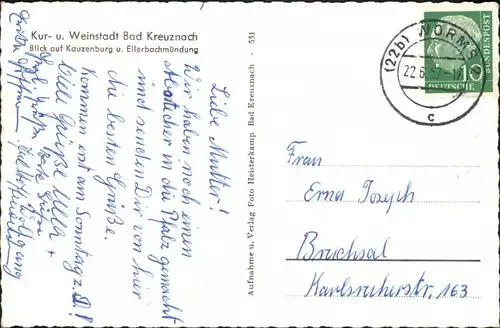 Kur- u. Weinstadt Bad Kreuznach
Blick auf Kauzenburg u. Ellerbachmündung
Liebe Mutter!
Wir haben noch einen
Abstecher in die Pfalz gemacht
und senden Dir von hier
die besten Grüße.
Kommen erst am Sonntag z. D.!
Viele Grüße Ulla +
Wolfgang
Aufnahme u. Verlag Foto Heisterkamp Bad Kreuznach - 531
(22b) WORMS
22.6.57-17
c
10
DEUTSCHE
BUNDESPOST
Frau
Erna Joseph
Bruchsal
Karlsruherstr. 163